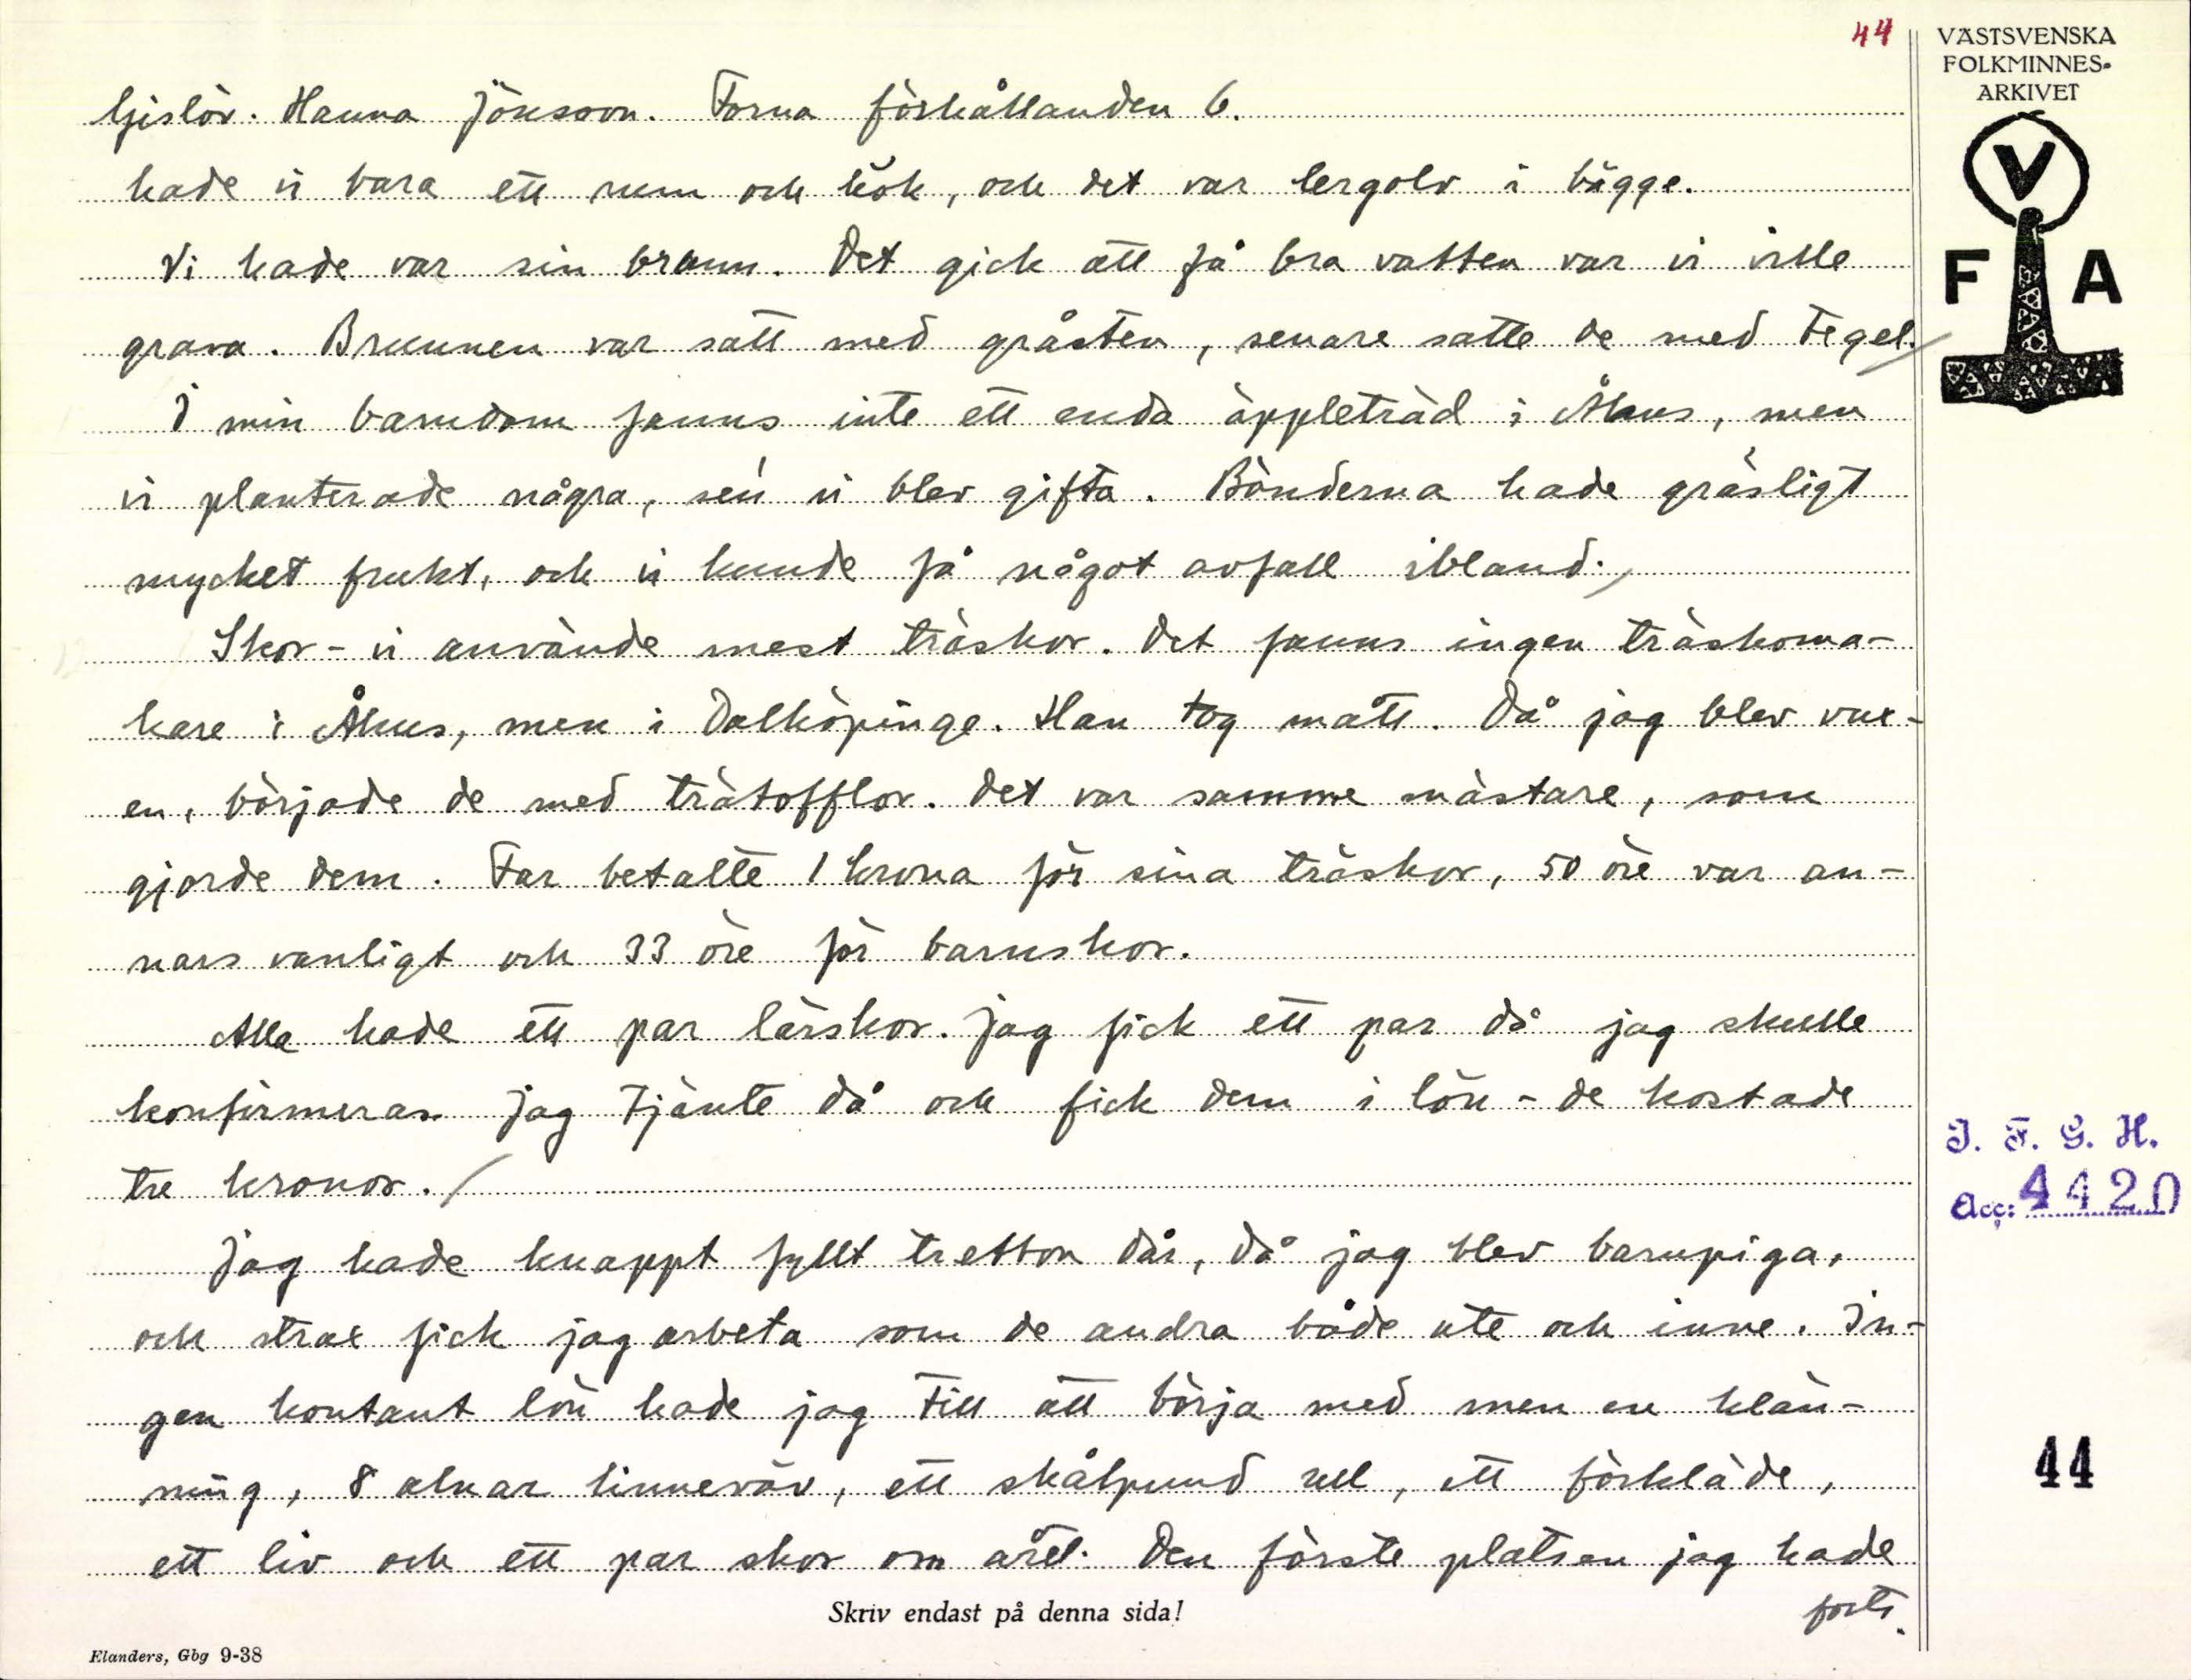 44
VÄSTSVENSKA
FOLKMINNES-
ARKIVET
V
F A
Gislöv. Hanna Jönsson. Forna förhållanden 6.
hade vi bara ett rum och kök, och det var lergolv i bägge.
Vi hade var sin brunn. Det gick att få bra vatten var vi ville
grava. Brunnen var satt med gråsten, senare satte de med tegel.
I min barndom fanns inte ett enda äppleträd i Åkus, men
vi planterade några, sen vi blev gifta. Bönderna hade gräsligt
mycket frukt, och vi kunde få något avfall ibland.
Skor - vi använde mest träskor. Det fanns ingen träskoma-
kare i Åkus, men i Dalköpinge. Han tog mått. Då jag blev vux-
en, började de med trätofflor. Det var samme mästare, som
gjorde dem. Far betalte 1 krona för sina träskor, 50 öre var an-
nars vanligt och 33 öre för barnskor.
Alla hade ett par lärskor. Jag fick ett par då jag skulle
konfirmeras. Jag tjänte då och fick dem i lön - de kostade
tre kronor.
Jag hade knappt fyllt tretton år, då jag blev barnpiga,
och strax fick jag arbeta som de andra både ute och inne. In-
gen kontant lön hade jag till att börja med men en klän-
ning, 8 alnar linneväv, ett skålpund ull, ett förkläde,
ett liv och ett par skor om året. Den förste platsen jag hade
forts.
Skriv endast på denna sida!
Elanders, Gbg 9-38
I. F. G. H.
Acc: 4420
44